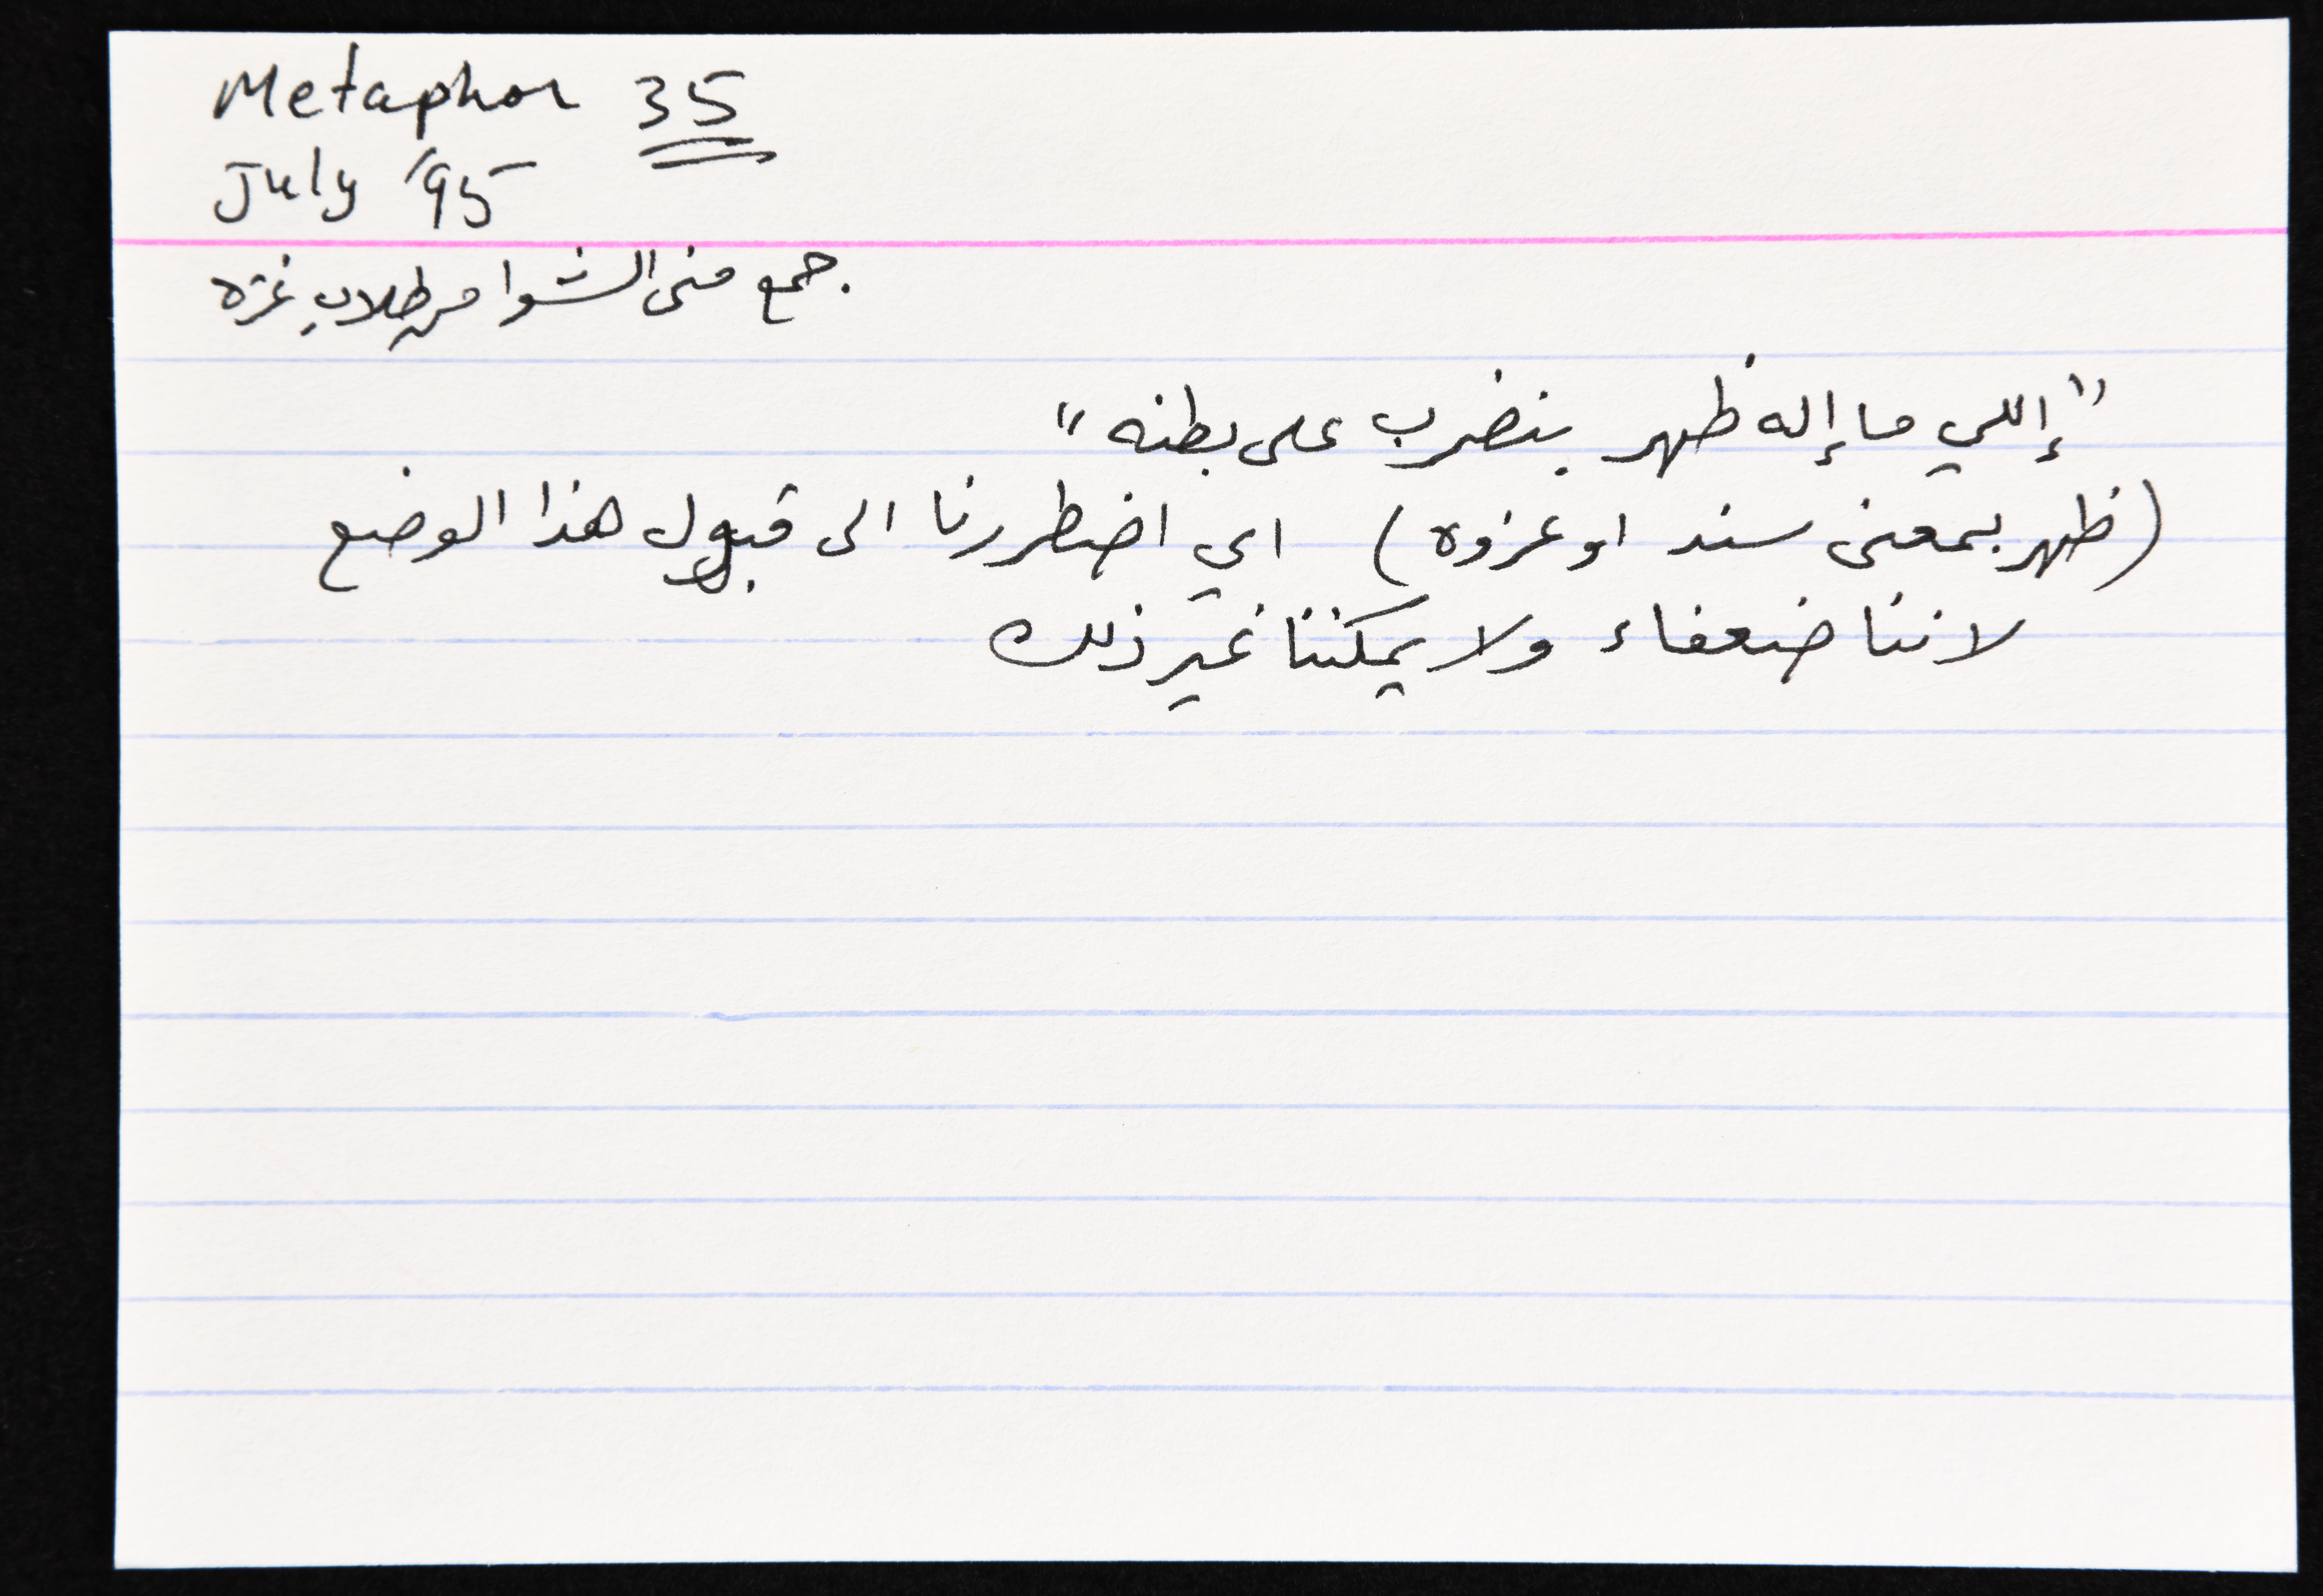 Metaphor 35
July '95
جمع منى الشوا من طلاب غزه
"إللي ما إله ظهر بنضرب على بطنه"
(ظهر بمعنى سند او عزوه) اي اضطررنا الى قبول هذا الوضع
لاننا ضعفاء ولا يمكننا غير ذلك